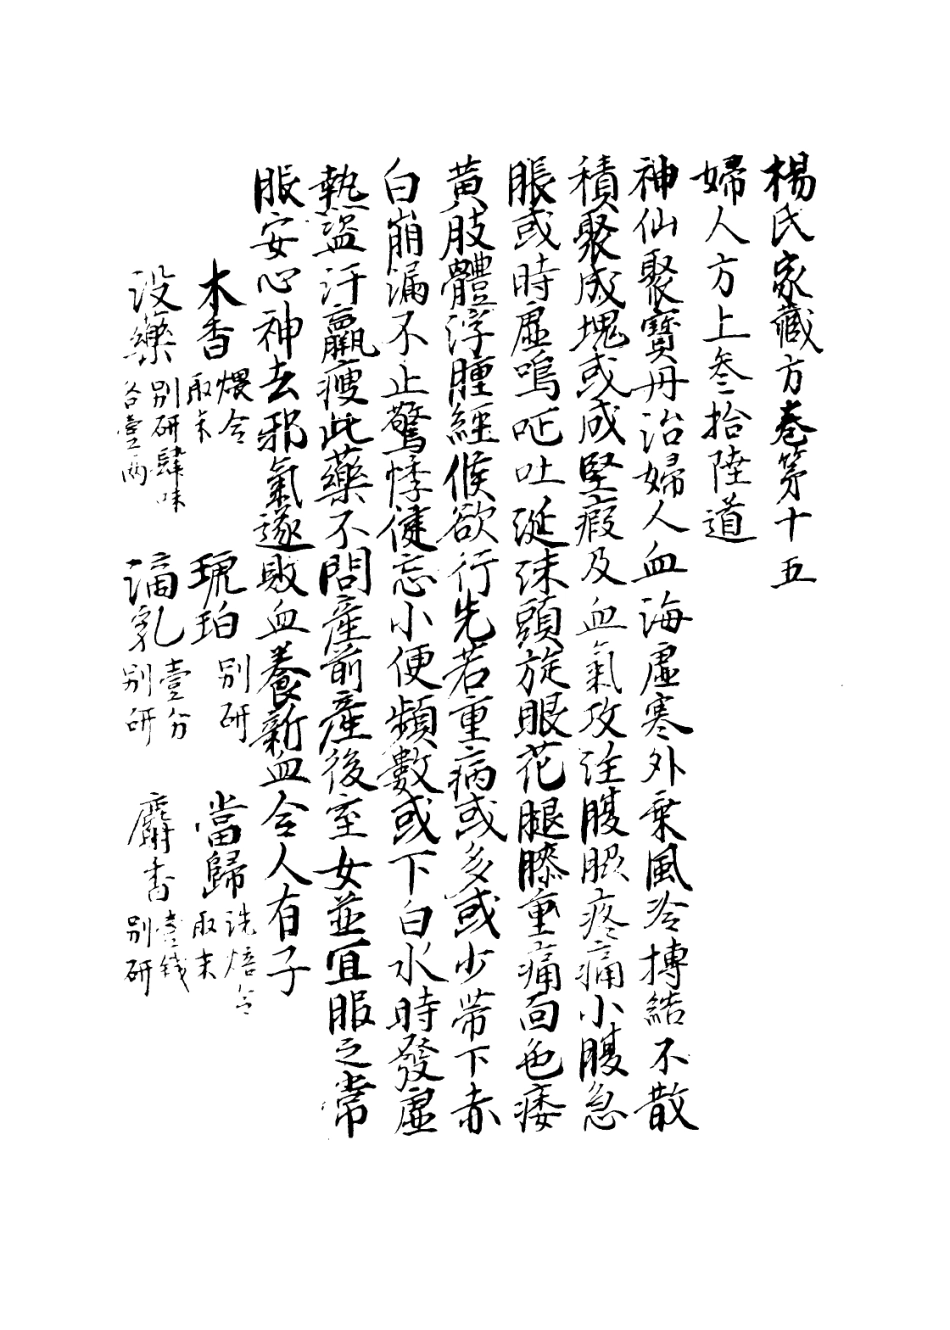 楊氏家藏方卷第十五
婦人方上叁拾陸道
神仙聚寶丹治婦人血海虛寒外乗風冷摶結不散
積聚成塊或成堅瘕及血氣攻注腹脇疼痛小腹急
脹或時虛鳴吐涎沫頭旋眼花腿膝重痛面色痿
黃肢體浮腫經候欲行先若重病或多或少帶下赤
白崩漏不止驚悸健忘小便頻數或下白水時發虛
熱盜汗羸瘦此藥不問産前産後室女並宜服之常
服安心神去邪氣逐敗血養新血令人有子
木香 煨令取末 琥珀 別研 當歸 洗焙令取末
没藥 別研肆味各壹兩 滴乳 壹分別研 麝香 壹錢別研